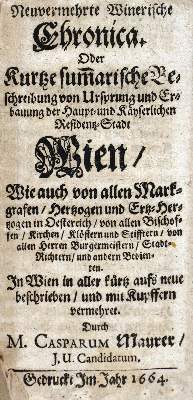 Neuvermehrte Winerische
Chronica.
Oder
Kurtze sum̃arische Be-
schreibung von Ursprung und Er-
bauung der Haupt- und Käyserlichen
Residentz-Stadt
Wien/
Wie auch von allen Mark-
grafen / Hertzogen und Ertz-Her-
tzogen in Oesterreich / von allen Bischof-
fen / Kirchen / Klöstern und Stifftern / von
allen Herren Burgermeistern / Stadt-
Richtern/ und andern Bedien-
ten.
In Wien in aller kürtz aufs neue
beschrieben / und mit Kupffern
vermehret.
Durch
M. CASPARUM Maurer /
J. U. Candidatum.
Gedruckt Im Jahr 1664.